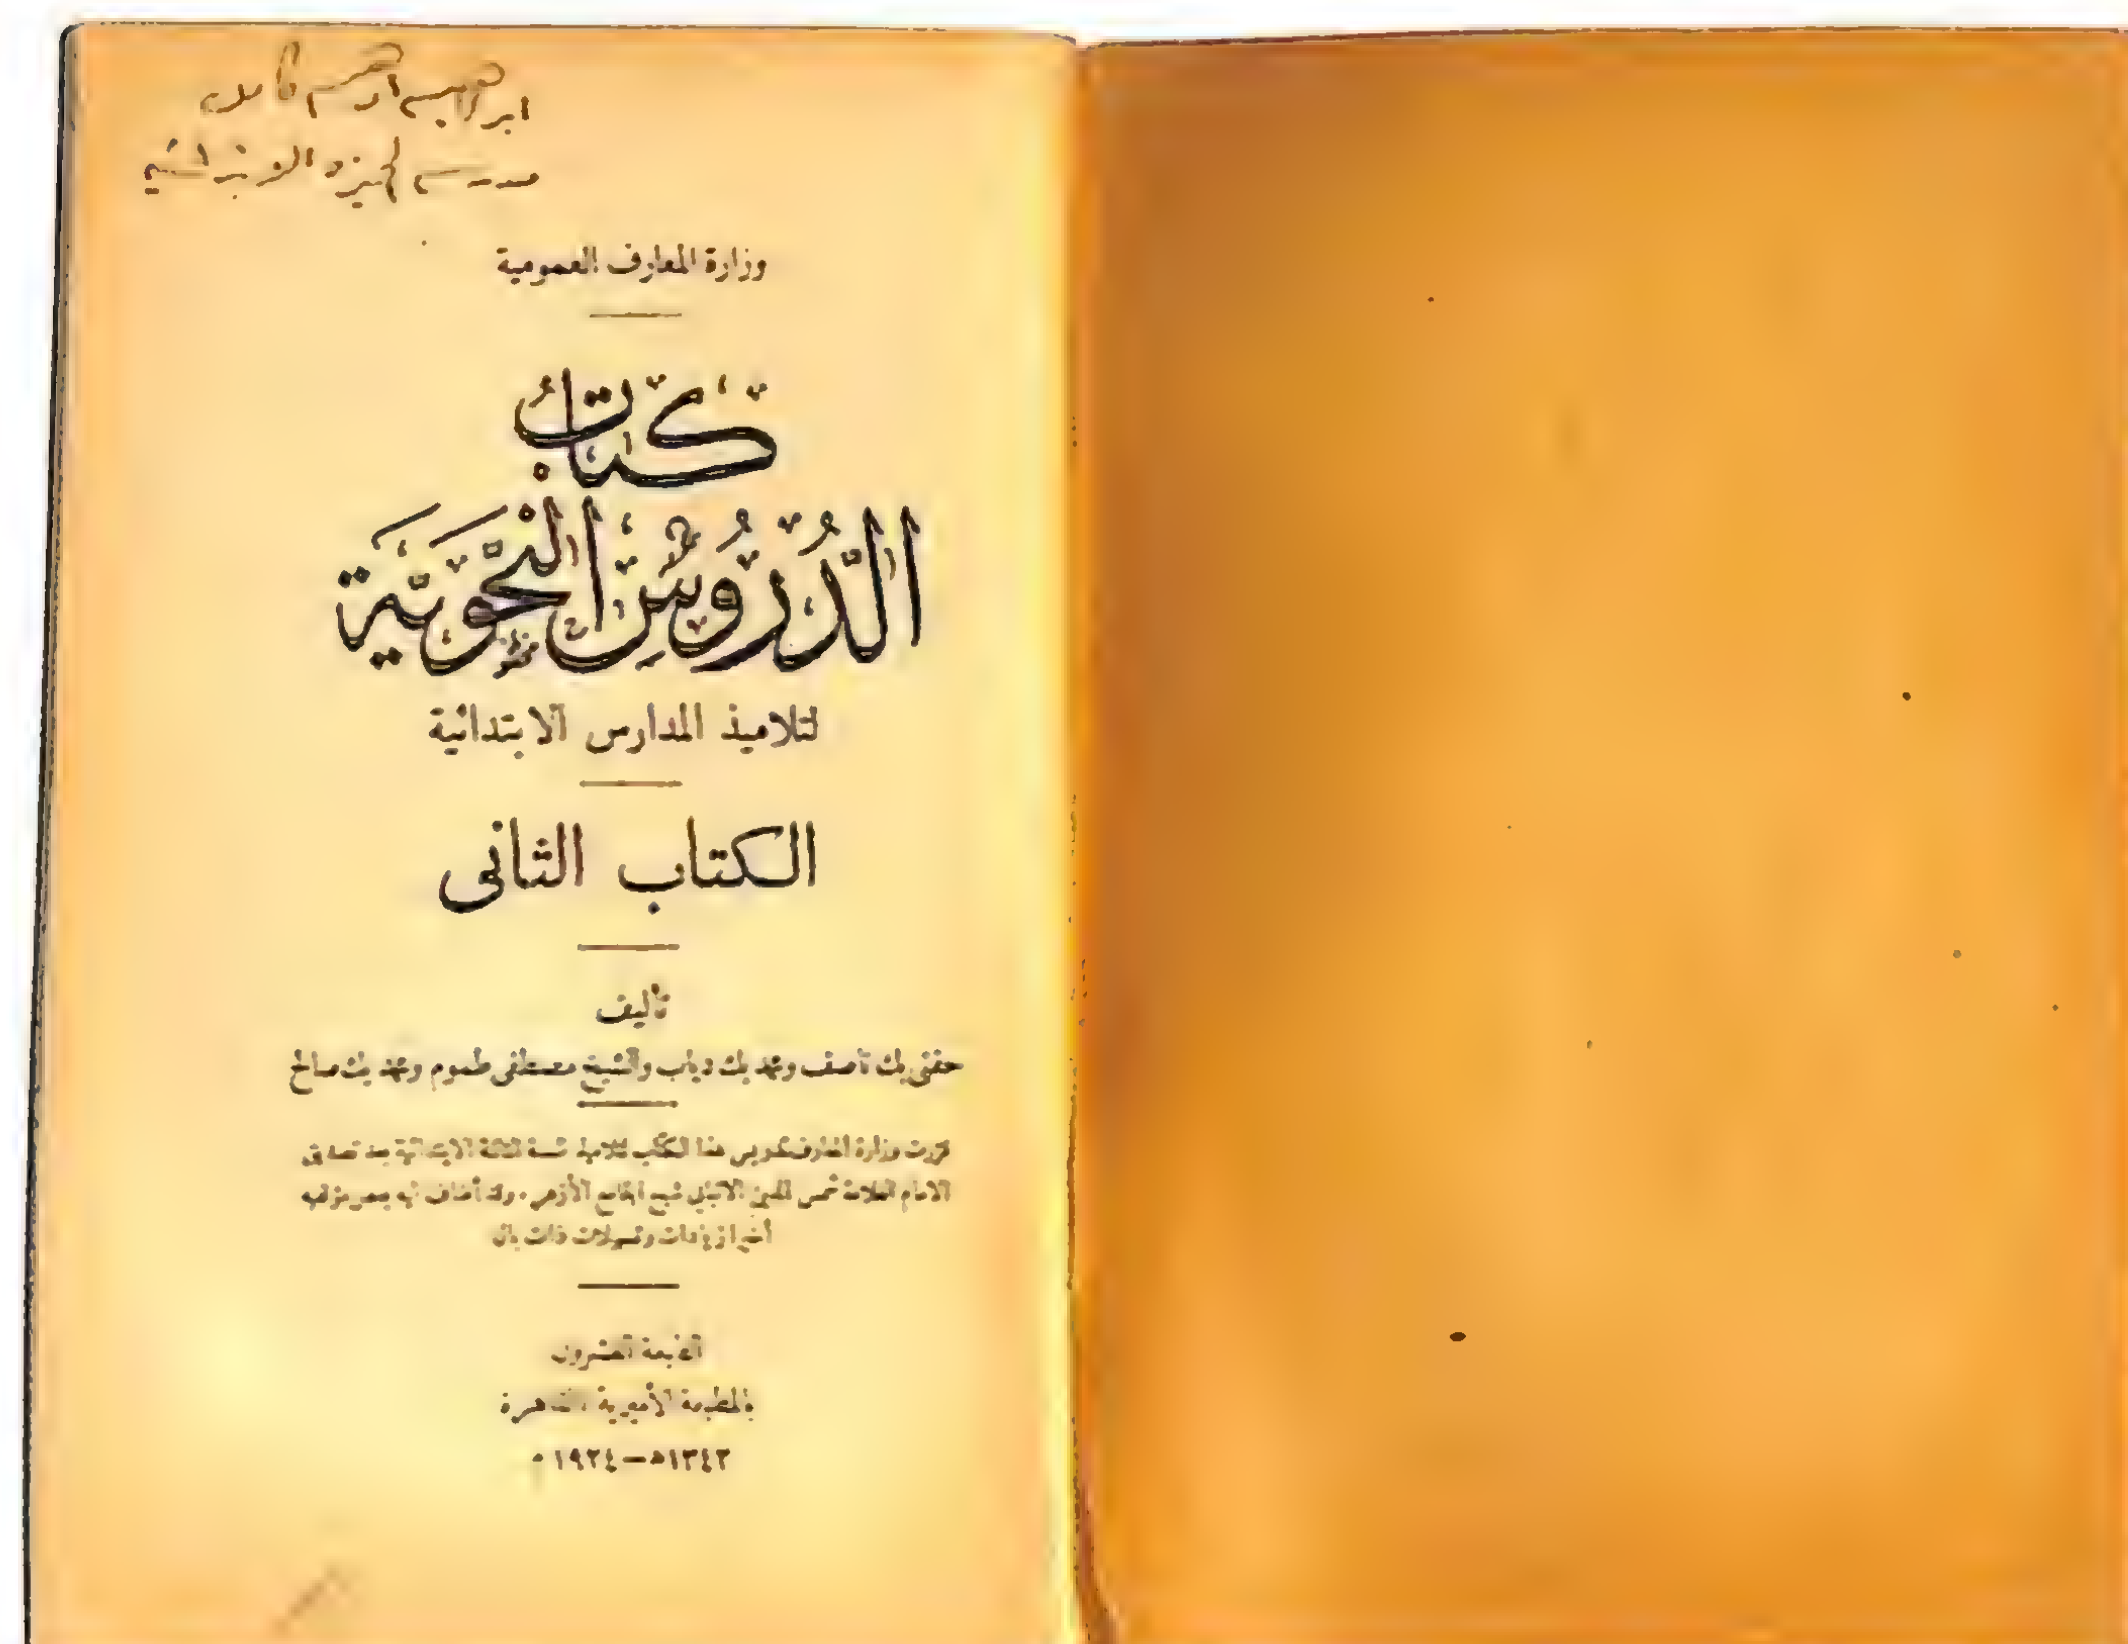 ابراهيم ادهم كامل
مدرسة الجيزة الابتدائية
وزارة المعارف العمومية
كتاب
الدُّرُوسِ النَّحْوِيَّةِ
لتلاميذ المدارس الابتدائية
الكتاب الثانى
تأليف
حفنى بك ناصف ومحمد بك دياب والشيخ مصطفى طموم ومحمد بك صالح
قررت وزارة المعارف تدريس هذا الكتاب لتلاميذ السنة الثالثة الابتدائية بعد تصديق
الامام العلامة شمس الدين الانبابى شيخ الجامع الأزهر، وقد أضاف اليه بعض مؤلفيه
أخيرا زيادات وتسهيلات ذات بال
الطبعة العشرون
بالمطبعة الأميرية بالقاهرة
١٣٤٣ه‍ — ١٩٢٤م